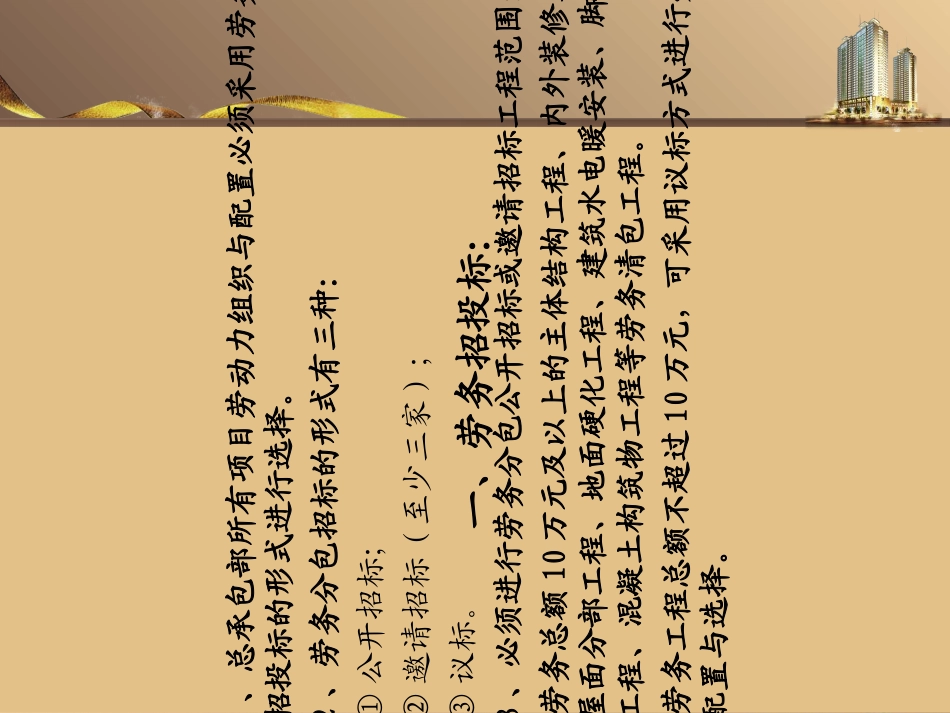 一、劳务招投标：
、总承包部所有项目劳动力组织与配置必须采用劳
招投标的形式进行选择。
、劳务分包招标的形式有三种：
① 公开招标；
② 邀请招标（至少三家）；
③ 议标。
3、必须进行劳务分包公开招标或邀请招标工程范围
劳务总额10万元及以上的主体结构工程、内外装修
屋面分部工程、地面硬化工程、建筑水电暖安装、脚
工程、混凝土构筑物工程等劳务清包工程。
劳务工程总额不超过10万元，可采用议标方式进行
配置与选择。